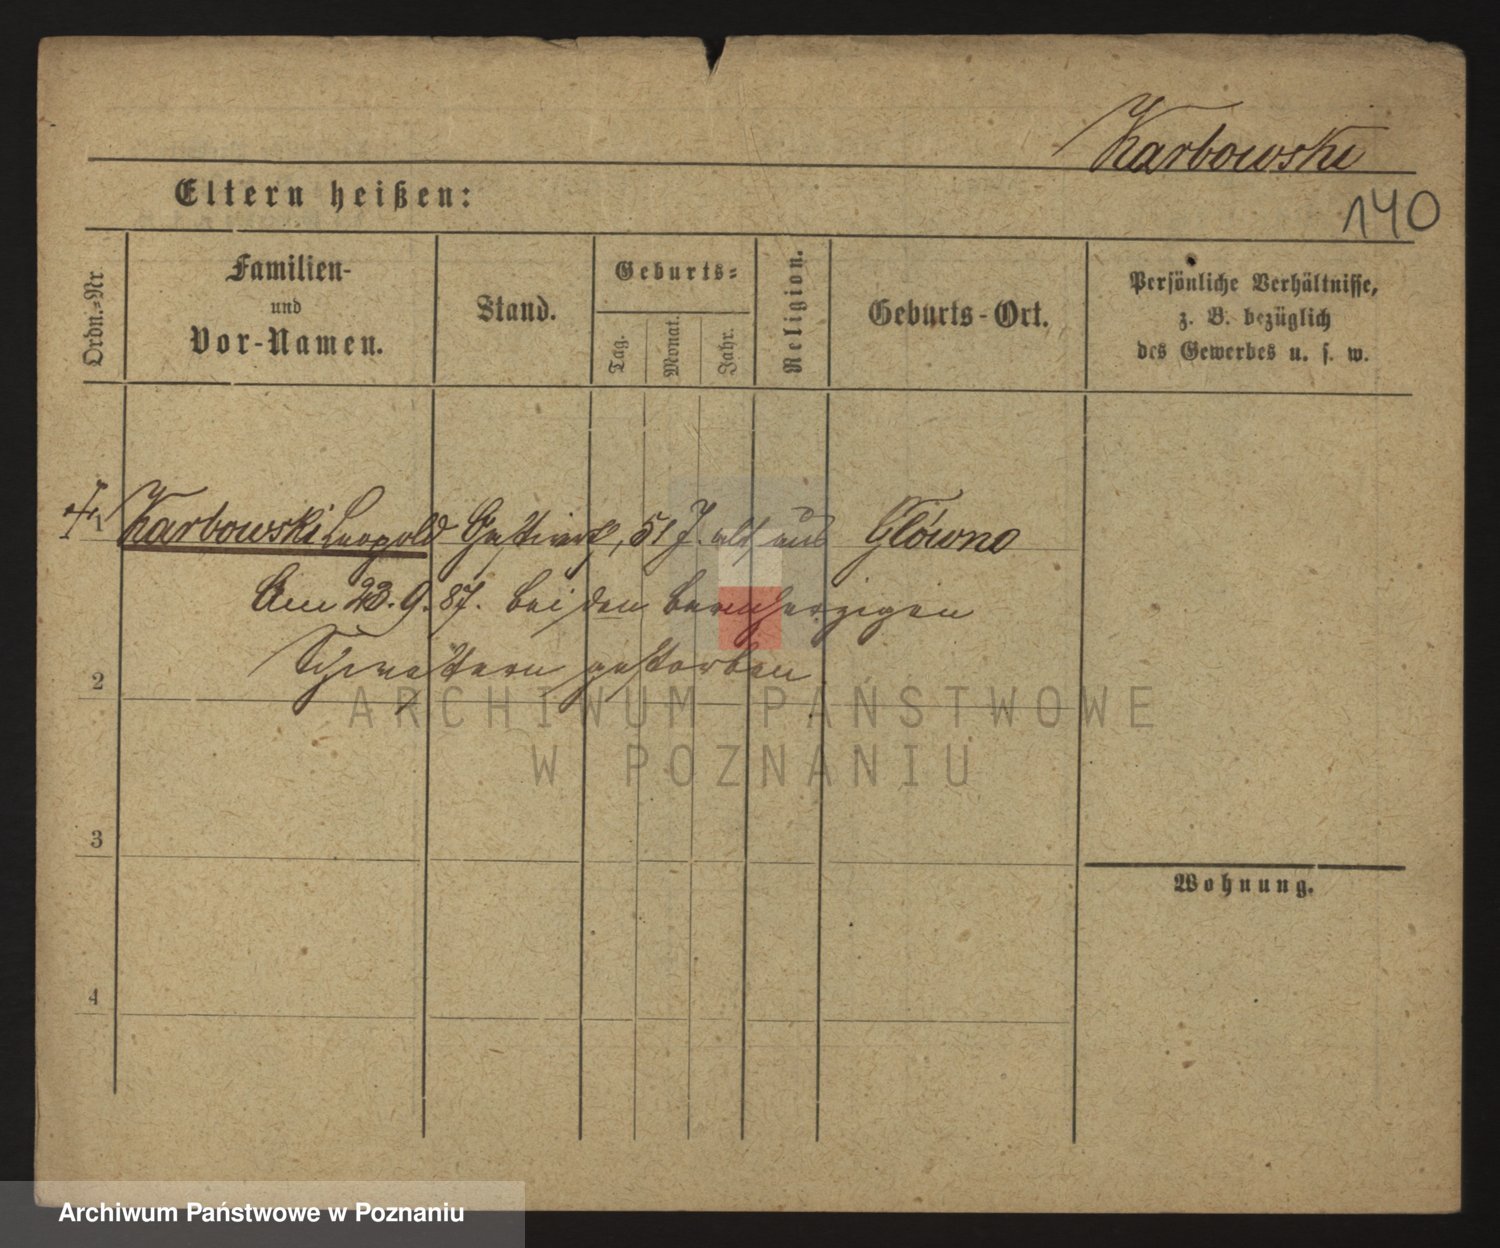 Karbowski
140
Eltern heißen:
Ordn.-Nr.
Familien-
und
Vor-Namen.
Stand.
Geburts-
Tag.
Monat.
Jahr.
Religion.
Geburts-Ort.
Persönliche Verhältnisse,
z. B. bezüglich
des Gewerbes u. s. w.
1 Karbowski Leopold Gastwirth, 51 J. alt aus Główno
Am 23. 9. 87. bei den barmherzigen
Schwestern gestorben
2
3
4
Wohnung.
ARCHIWUM PAŃSTWOWE
W POZNANIU
Archiwum Państwowe w Poznaniu